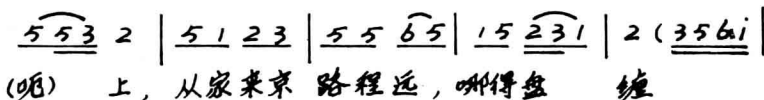 5 5 3 2 | 5 1 2 3 | 5 5 6 5 | 1 5 2 3 1 | 2 ( 3 5 6 i |
(呃) 上, 从家来京 路程远, 哪得盘 缠